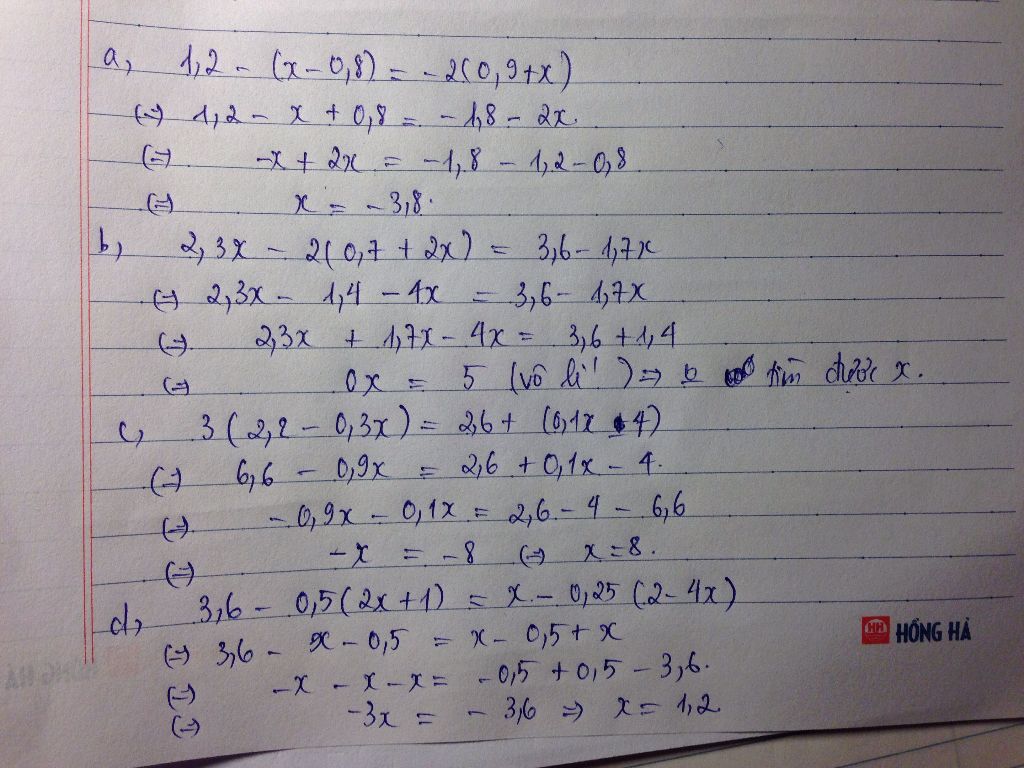 a, 1,2 - (x - 0,8) = -2(0,9 + x)
(=) 1,2 - x + 0,8 = -1,8 - 2x.
(=) -x + 2x = -1,8 - 1,2 - 0,8
(=) x = -3,8.
b, 2,3x - 2(0,7 + 2x) = 3,6 - 1,7x
(=) 2,3x - 1,4 - 4x = 3,6 - 1,7x
(=). 2,3x + 1,7x - 4x = 3,6 + 1,4
(=) 0x = 5 (vô lí!) => tìm được x.
c, 3(2,2 - 0,3x) = 2,6 + (0,1x - 4)
(=) 6,6 - 0,9x = 2,6 + 0,1x - 4.
(=) -0,9x - 0,1x = 2,6 - 4 - 6,6
(=) -x = -8 (=) x = 8.
d, 3,6 - 0,5(2x + 1) = x - 0,25(2 - 4x)
HỒNG HÀ
(=) 3,6 - x - 0,5 = x - 0,5 + x
(=) -x - x - x = -0,5 + 0,5 - 3,6.
(=) -3x = -3,6 => x = 1,2